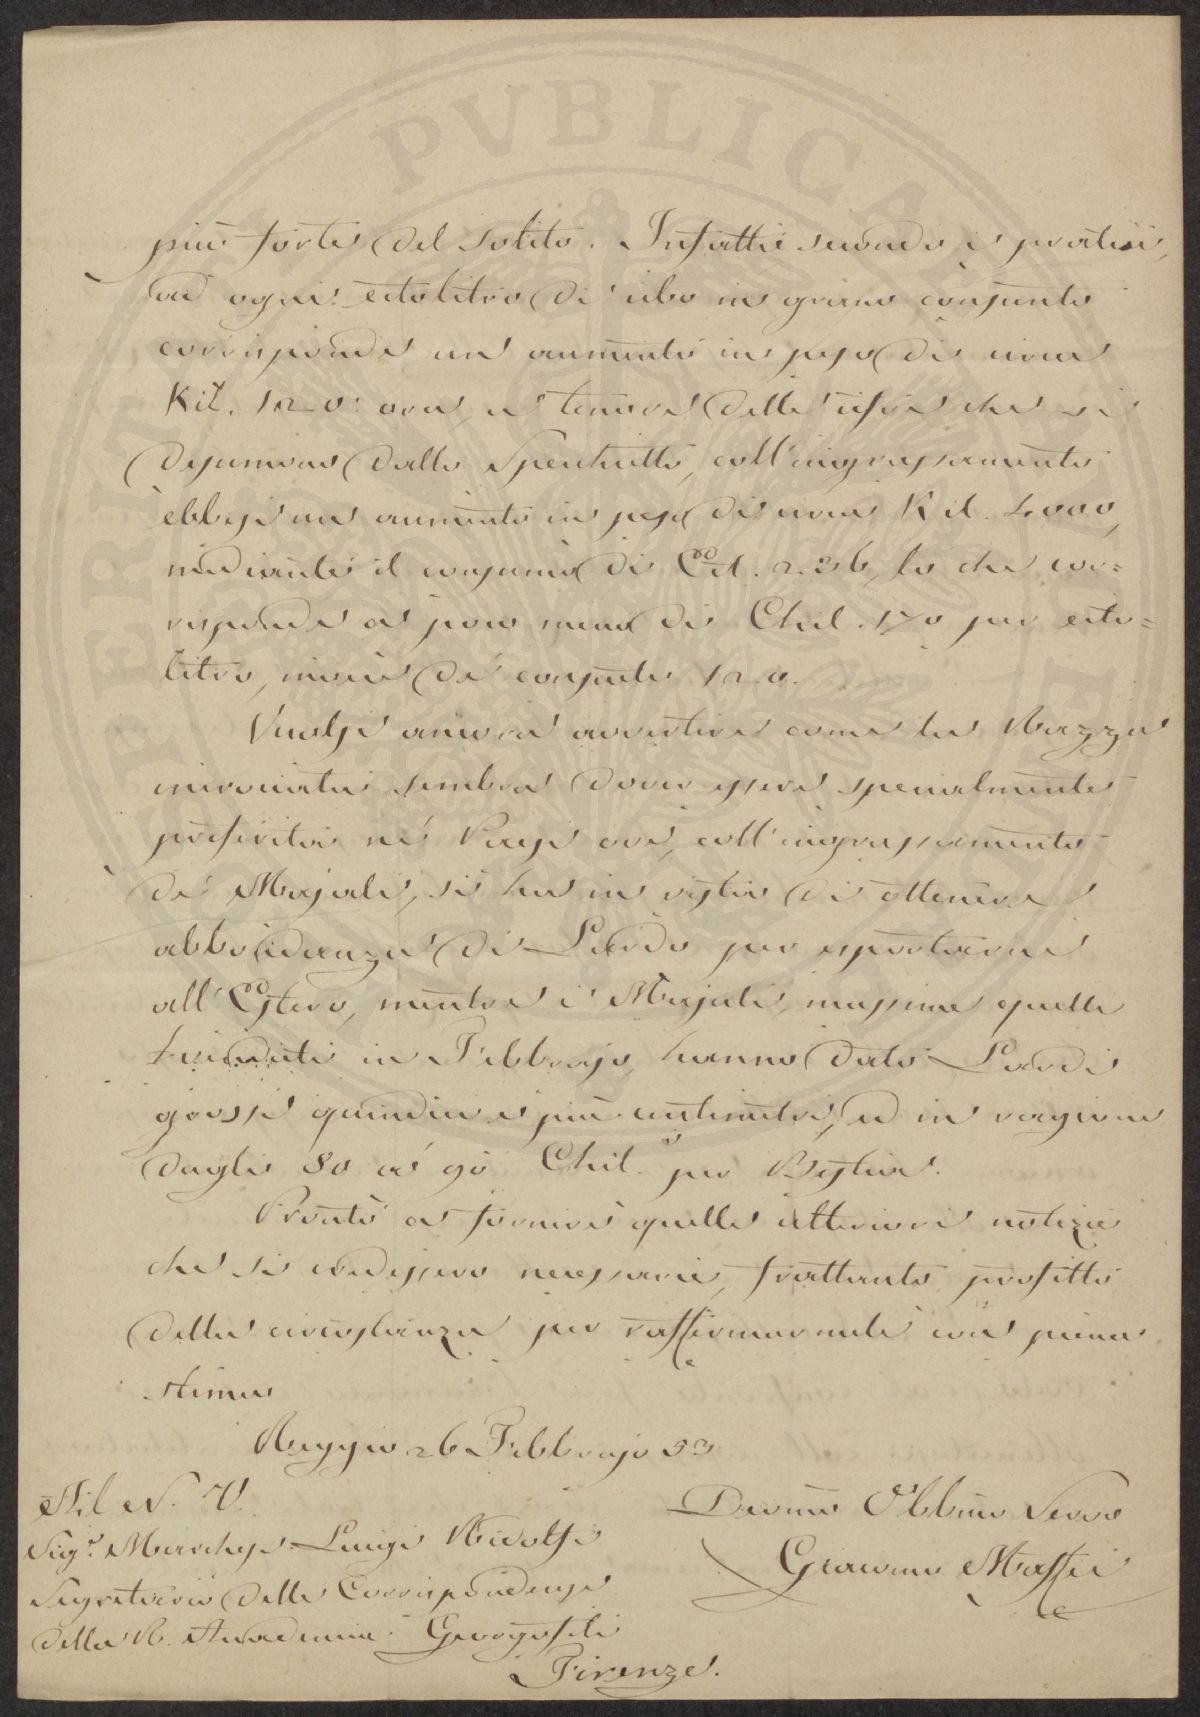 PVBLICA
più forte del solito. Infatti secondo i pratici,
ad ogni ectolitro di cibo in grano consunto
corrisponde un aumento in peso di circa
Kil. 120: ora, a tenore delle cifre che si
desumono dallo Specchietto, coll'ingrassamento
ebbesi un aumento in peso di circa Kil. 4000,
mediante il consumo di Ect. 236, lo che cor=
risponde a poco meno di Chil. 170 per ecto=
litro, invece de' consueti 120.
Vuolsi ancora avvertire come la Razza
incrociata sembra dover essere specialmente
preferita ne' Paesi ove, coll'ingrassamento
de' Majali, si ha in vista di ottenere
abbondanza di Lardo per esportarne
all'Estero, mentre i Majali, massime quelli
in Febbrajo, hanno dato Lardi
grossi quindici e più centimetri, ed in ragione
dagli 80 a' 90 Chil. per Bestia.
Pronto a fornire quelle ulteriori notizie
che si credessero necessarie, frattanto profitto
della circostanza per raffermarmele con piena
stima
Reggio 26 Febbrajo 53
Al N. V.
Sigr. Marchese Luigi Ridolfi
Segretario delle Corrispondenze
della R. Accademia Georgofili
Firenze.
Devmo Obbmo Servo
Giacomo Maffei